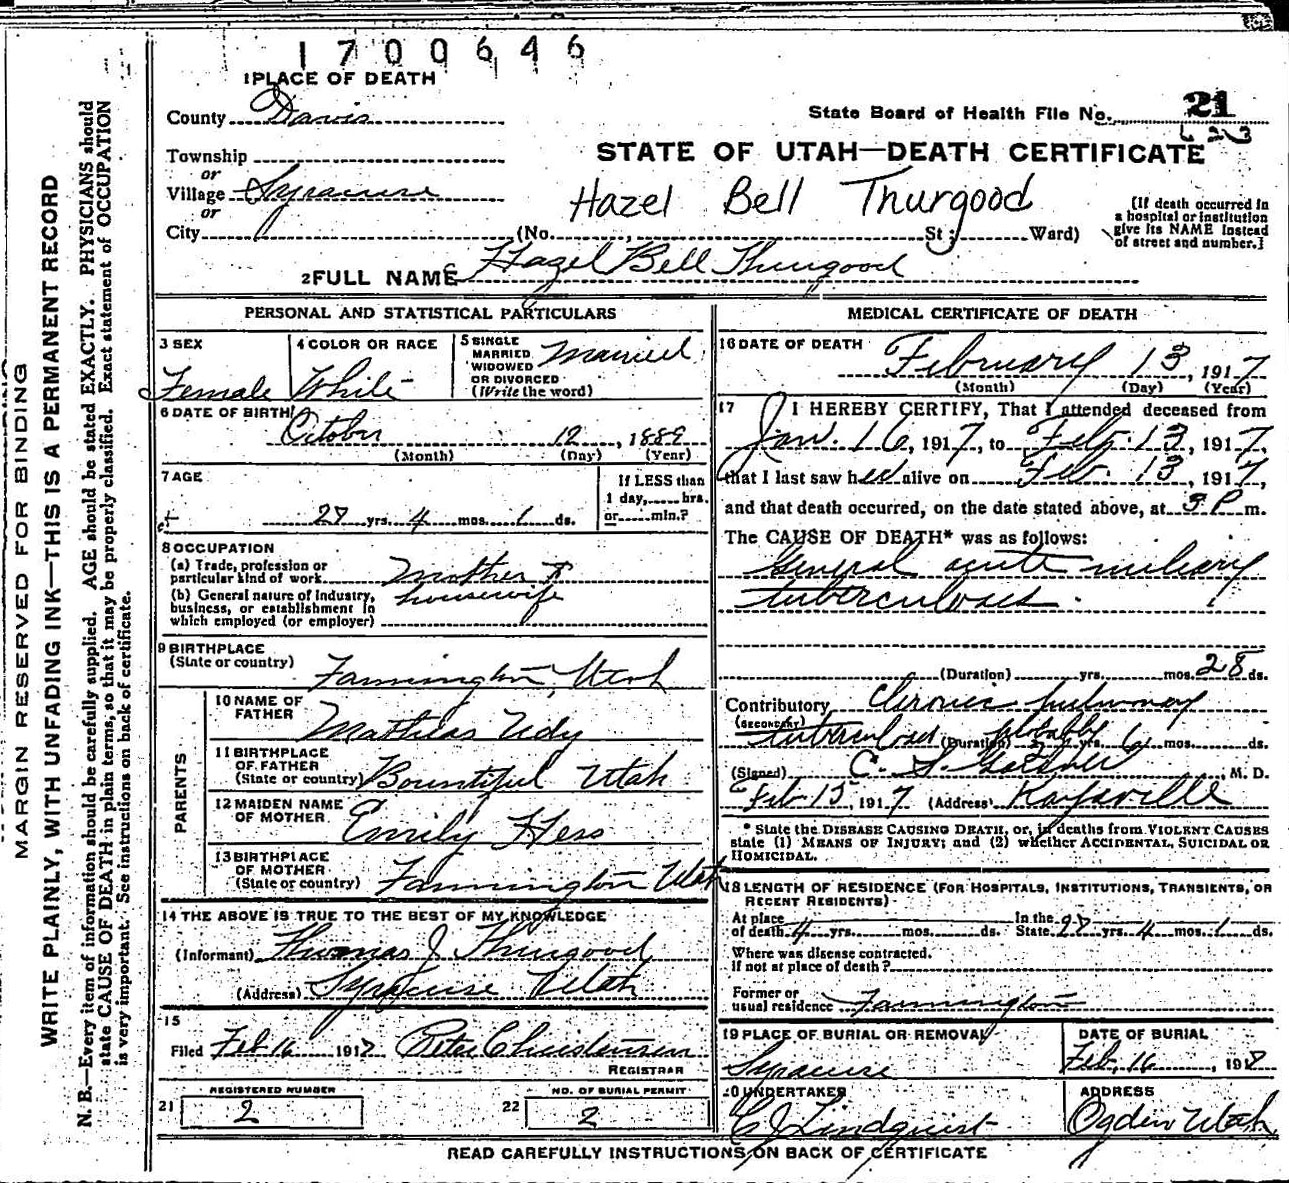 1700646
1 PLACE OF DEATH
County Davis
State Board of Health File No. 21
Township
STATE OF UTAH—DEATH CERTIFICATE
or
Village Syracuse
Hazel Bell Thurgood
or
City (No. , St; Ward)
[If death occurred in
a hospital or institution
give its NAME instead
of street and number.]
2 FULL NAME Hazel Bell Thurgood
PERSONAL AND STATISTICAL PARTICULARS
3 SEX
Female
4 COLOR OR RACE
White
5 SINGLE
MARRIED
WIDOWED
OR DIVORCED
(Write the word)
Married
6 DATE OF BIRTH
October 12, 1889
(Month) (Day) (Year)
7 AGE
27 yrs. 4 mos. 1 ds.
If LESS than
1 day, hrs.
or min.?
8 OCCUPATION
(a) Trade, profession or
particular kind of work Mother &
(b) General nature of industry,
business, or establishment in
which employed (or employer)
housewife
9 BIRTHPLACE
(State or country) Farmington, Utah
PARENTS
10 NAME OF
FATHER Mathias Udy
11 BIRTHPLACE
OF FATHER
(State or country) Bountiful Utah
12 MAIDEN NAME
OF MOTHER Emily Hess
13 BIRTHPLACE
OF MOTHER
(State or country) Farmington Utah
14 THE ABOVE IS TRUE TO THE BEST OF MY KNOWLEDGE
(Informant) Thomas J. Thurgood
(Address) Syracuse Utah
15
Filed Feb 16 1917 Peter Christensen
REGISTRAR
REGISTERED NUMBER
21 2
NO. OF BURIAL PERMIT
22 2
MEDICAL CERTIFICATE OF DEATH
16 DATE OF DEATH
February 13, 1917
(Month) (Day) (Year)
17 I HEREBY CERTIFY, That I attended deceased from
Jan. 16, 1917, to Feb. 13, 1917,
that I last saw her alive on Feb. 13, 1917,
and that death occurred, on the date stated above, at 3 P m.
The CAUSE OF DEATH* was as follows:
General acute miliary
tuberculosis.
(Duration) yrs. mos. 28 ds.
Contributory Chronic pulmonary
(SECONDARY)
tuberculosis (Duration) probably yrs. 6 mos. ds.
(Signed) C. , M. D.
Feb 15, 1917 (Address) Kaysville
* State the DISEASE CAUSING DEATH, or, in deaths from VIOLENT CAUSES
state (1) MEANS OF INJURY; and (2) whether ACCIDENTAL, SUICIDAL OR
HOMICIDAL.
18 LENGTH OF RESIDENCE (FOR HOSPITALS, INSTITUTIONS, TRANSIENTS, OR
RECENT RESIDENTS)
At place
of death 4 yrs. mos. ds.
In the
State 27 yrs. 4 mos. 1 ds.
Where was disease contracted.
If not at place of death?
Former or
usual residence Farmington
19 PLACE OF BURIAL OR REMOVAL
Syracuse
DATE OF BURIAL
Feb. 16, 1917
20 UNDERTAKER
C J Lindquist
ADDRESS
Ogden Utah
READ CAREFULLY INSTRUCTIONS ON BACK OF CERTIFICATE
MARGIN RESERVED FOR BINDING
WRITE PLAINLY, WITH UNFADING INK—THIS IS A PERMANENT RECORD
N. B.—Every item of information should be carefully supplied. AGE should be stated EXACTLY. PHYSICIANS should
state CAUSE OF DEATH in plain terms, so that it may be properly classified. Exact statement of OCCUPATION
is very important. See instructions on back of certificate.